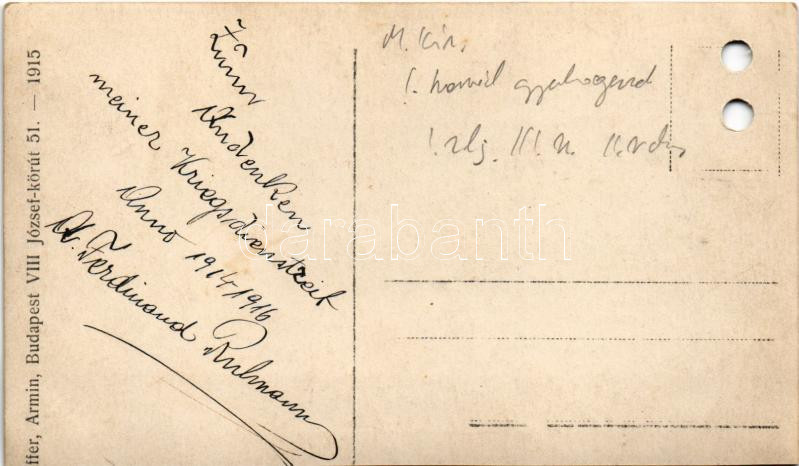 Zum
Andenken
meiner Kriegsdienstzeit
Anno 1914 1916
Ferdinand Ruhmann
M. kir.
I. honvéd gyalogezred
I. zlj. III. sz.
ffer, Armin, Budapest VIII József-körút 51. — 1915
darabanth